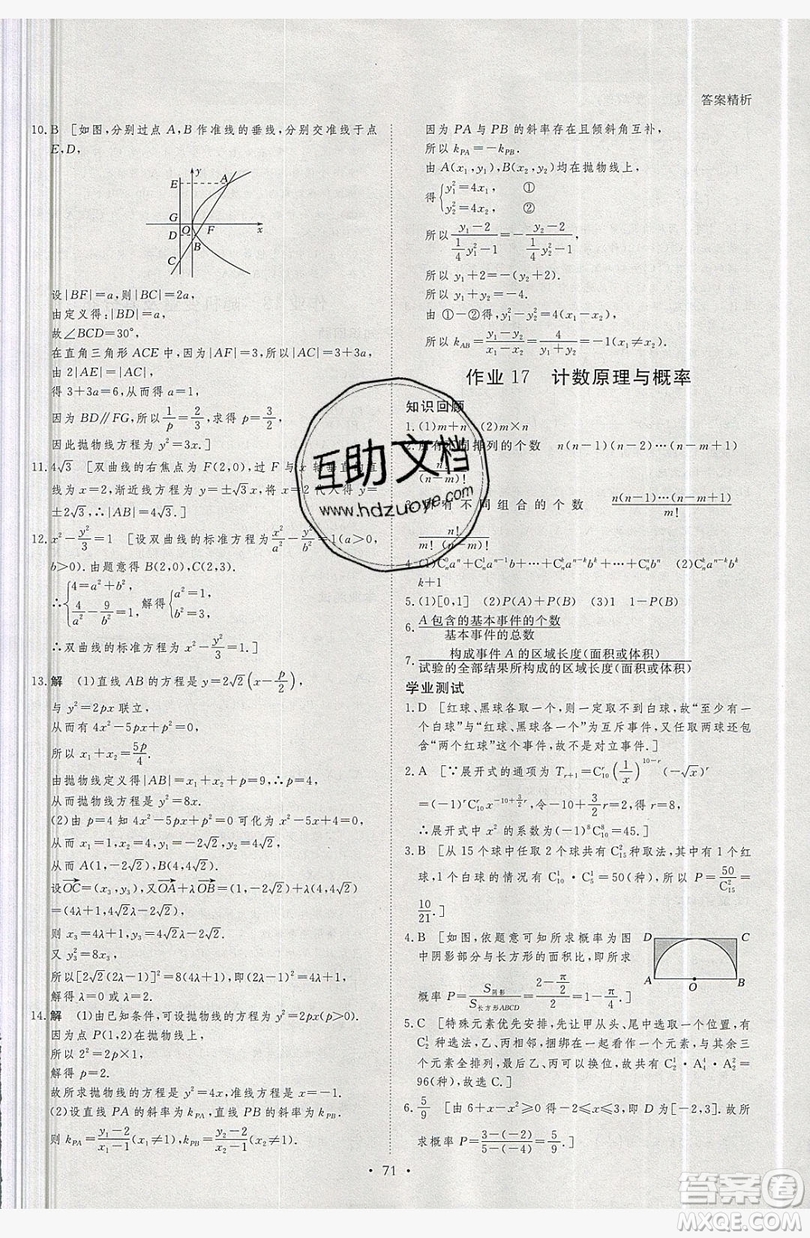 答案精析
10. B [如图,分别过点 A,B 作准线的垂线,分别交准线于点
E,D,
y
E
A
G
O
F
x
D
B
C
设|BF|=a,则|BC|=2a,
由定义得:|BD|=a,
故∠BCD=30°,
在直角三角形 ACE 中,因为|AF|=3,|AC|=3+3a,
因为 BD∥FG,所以 1/p=2/3,求得 p=3/2,
因此抛物线方程为 y²=3x.]
11. 4√3 [双曲线的右焦点为 F(2,0),过 F 与 x 轴垂直的直
线为 x=2,渐近线方程为 y=±√3x,将 x=2 代入得 y=
±2√3,∴|AB|=4√3.]
12. x²-y²/3=1 [设双曲线的标准方程为 x²/a²-y²/b²=1(a>0,
b>0).由题意得 B(2,0),C(2,3).
∴{4=a²+b², 4/a²-9/b²=1, 解得{a²=1, b²=3,
∴双曲线的标准方程为 x²-y²/3=1.]
13. 解 (1)直线 AB 的方程是 y=2√2(x-p/2),
与 y²=2px 联立,
从而有 4x²-5px+p²=0,
所以 x₁+x₂=5p/4.
由抛物线定义得|AB|=x₁+x₂+p=9,
从而抛物线方程为 y²=8x.
(2)由 p=4 知 4x²-5px+p²=0 可化为 x²-5x+4=0,
从而 x₁=1,x₂=4,y₁=-2√2,y₂=4√2,
从而 A(1,-2√2),B(4,4√2).
设OC=(x₃,y₃),又OC=OA+λOB=(1,-2√2)+λ(4,4√2)
=(4λ+1,4√2λ-2√2),
则 x₃=4λ+1,y₃=4√2λ-2√2.
又 y₃²=8x₃,
所以[2√2(2λ-1)]²=8(4λ+1),即(2λ-1)²=4λ+1,
解得 λ=0 或 λ=2.
14. 解 (1)由已知条件,可设抛物线的方程为 y²=2px(p>0).
因为点 P(1,2)在抛物线上,
所以 2²=2p×1,
解得 p=2.
故所求抛物线的方程为 y²=4x.
(2)设直线 PA 的斜率为 kPA,直线 PB 的斜率为 kPB.
则 kPA=(y₁-2)/(x₁-1)(x₁≠1),kPB=(y₂-2)/(x₂-1)(x₂≠1).
因为 PA 与 PB 的斜率存在且倾斜角互补,
所以 kPA=-kPB.
由 A(x₁,y₁),B(x₂,y₂)均在抛物线上,
得{y₁²=4x₁, ① y₂²=4x₂, ②
所以(y₁-2)/(1/4y₁²-1)=-(y₂-2)/(1/4y₂²-1),
所以 y₁+2=-(y₂+2).
所以 y₁+y₂=-4.
由①-②得,y₁²-y₂²=4(x₁-x₂),
所以 kAB=(y₁-y₂)/(x₁-x₂)=4/(y₁+y₂)=-1(x₁≠x₂).
作业 17 计数原理与概率
知识回顾
1.(1)m+n (2)m×n
2.所有不同排列的个数 n(n-1)(n-2)…(n-m+1)
不同组合的个数 n(n-1)…(n-m+1)/m!
n!/m!(n-m)!
k+1
5.(1)[0,1] (2)P(A)+P(B) (3)1 1-P(B)
6. A包含的基本事件的个数/基本事件的总数
7. 构成事件 A 的区域长度(面积或体积)/试验的全部结果所构成的区域长度(面积或体积)
学业测试
1. D [红球、黑球各取一个,则一定取不到白球,故“至少有
一个白球”与“红球、黑球各一个”为互斥事件,又任取两球还包
含“两个红球”等事件,故不是对立事件.]
2. A [∵展开式的通项为 Tr+1=C₁₀ʳ(1/x)^(10-r)(-√x)ʳ
=(-1)ʳC₁₀ʳx^(-10+3/2r),令-10+3/2r=2,得 r=8,
∴展开式中 x² 的系数为(-1)⁸C₁₀⁸=45.]
3. B [从 15 个球中任取 2 个球共有 C₁₅²种取法,其中有 1 个红
球,1 个白球的情况有 C₁₀¹·C₅¹=50(种),所以 P=50/C₁₅²=
10/21.]
4. B [如图,依题意可知所求概率为图
中阴影部分与长方形的面积比,即所求
概率 P=S阴影/S长方形ABCD=(2-π/2)/2=1-π/4.]
D
C
A
O
B
5. C [特殊元素优先安排,先让甲从头、尾中选取一个位置,有
C₂¹种选法,乙、丙相邻,捆绑在一起看作一个元素,与其余三个
元素全排列,最后乙、丙可以换位,故共有 C₂¹·A₄⁴·A₂²=
96(种).]
6. 5/9 [由 6+x-x²≥0,解得-2≤x≤3,即 D 为[-2,3].故所
求概率 P=(3-(-2))/(5-(-4))=5/9.]
71
互助文档
www.hdzuoye.com
答案圈
MXQE.COM